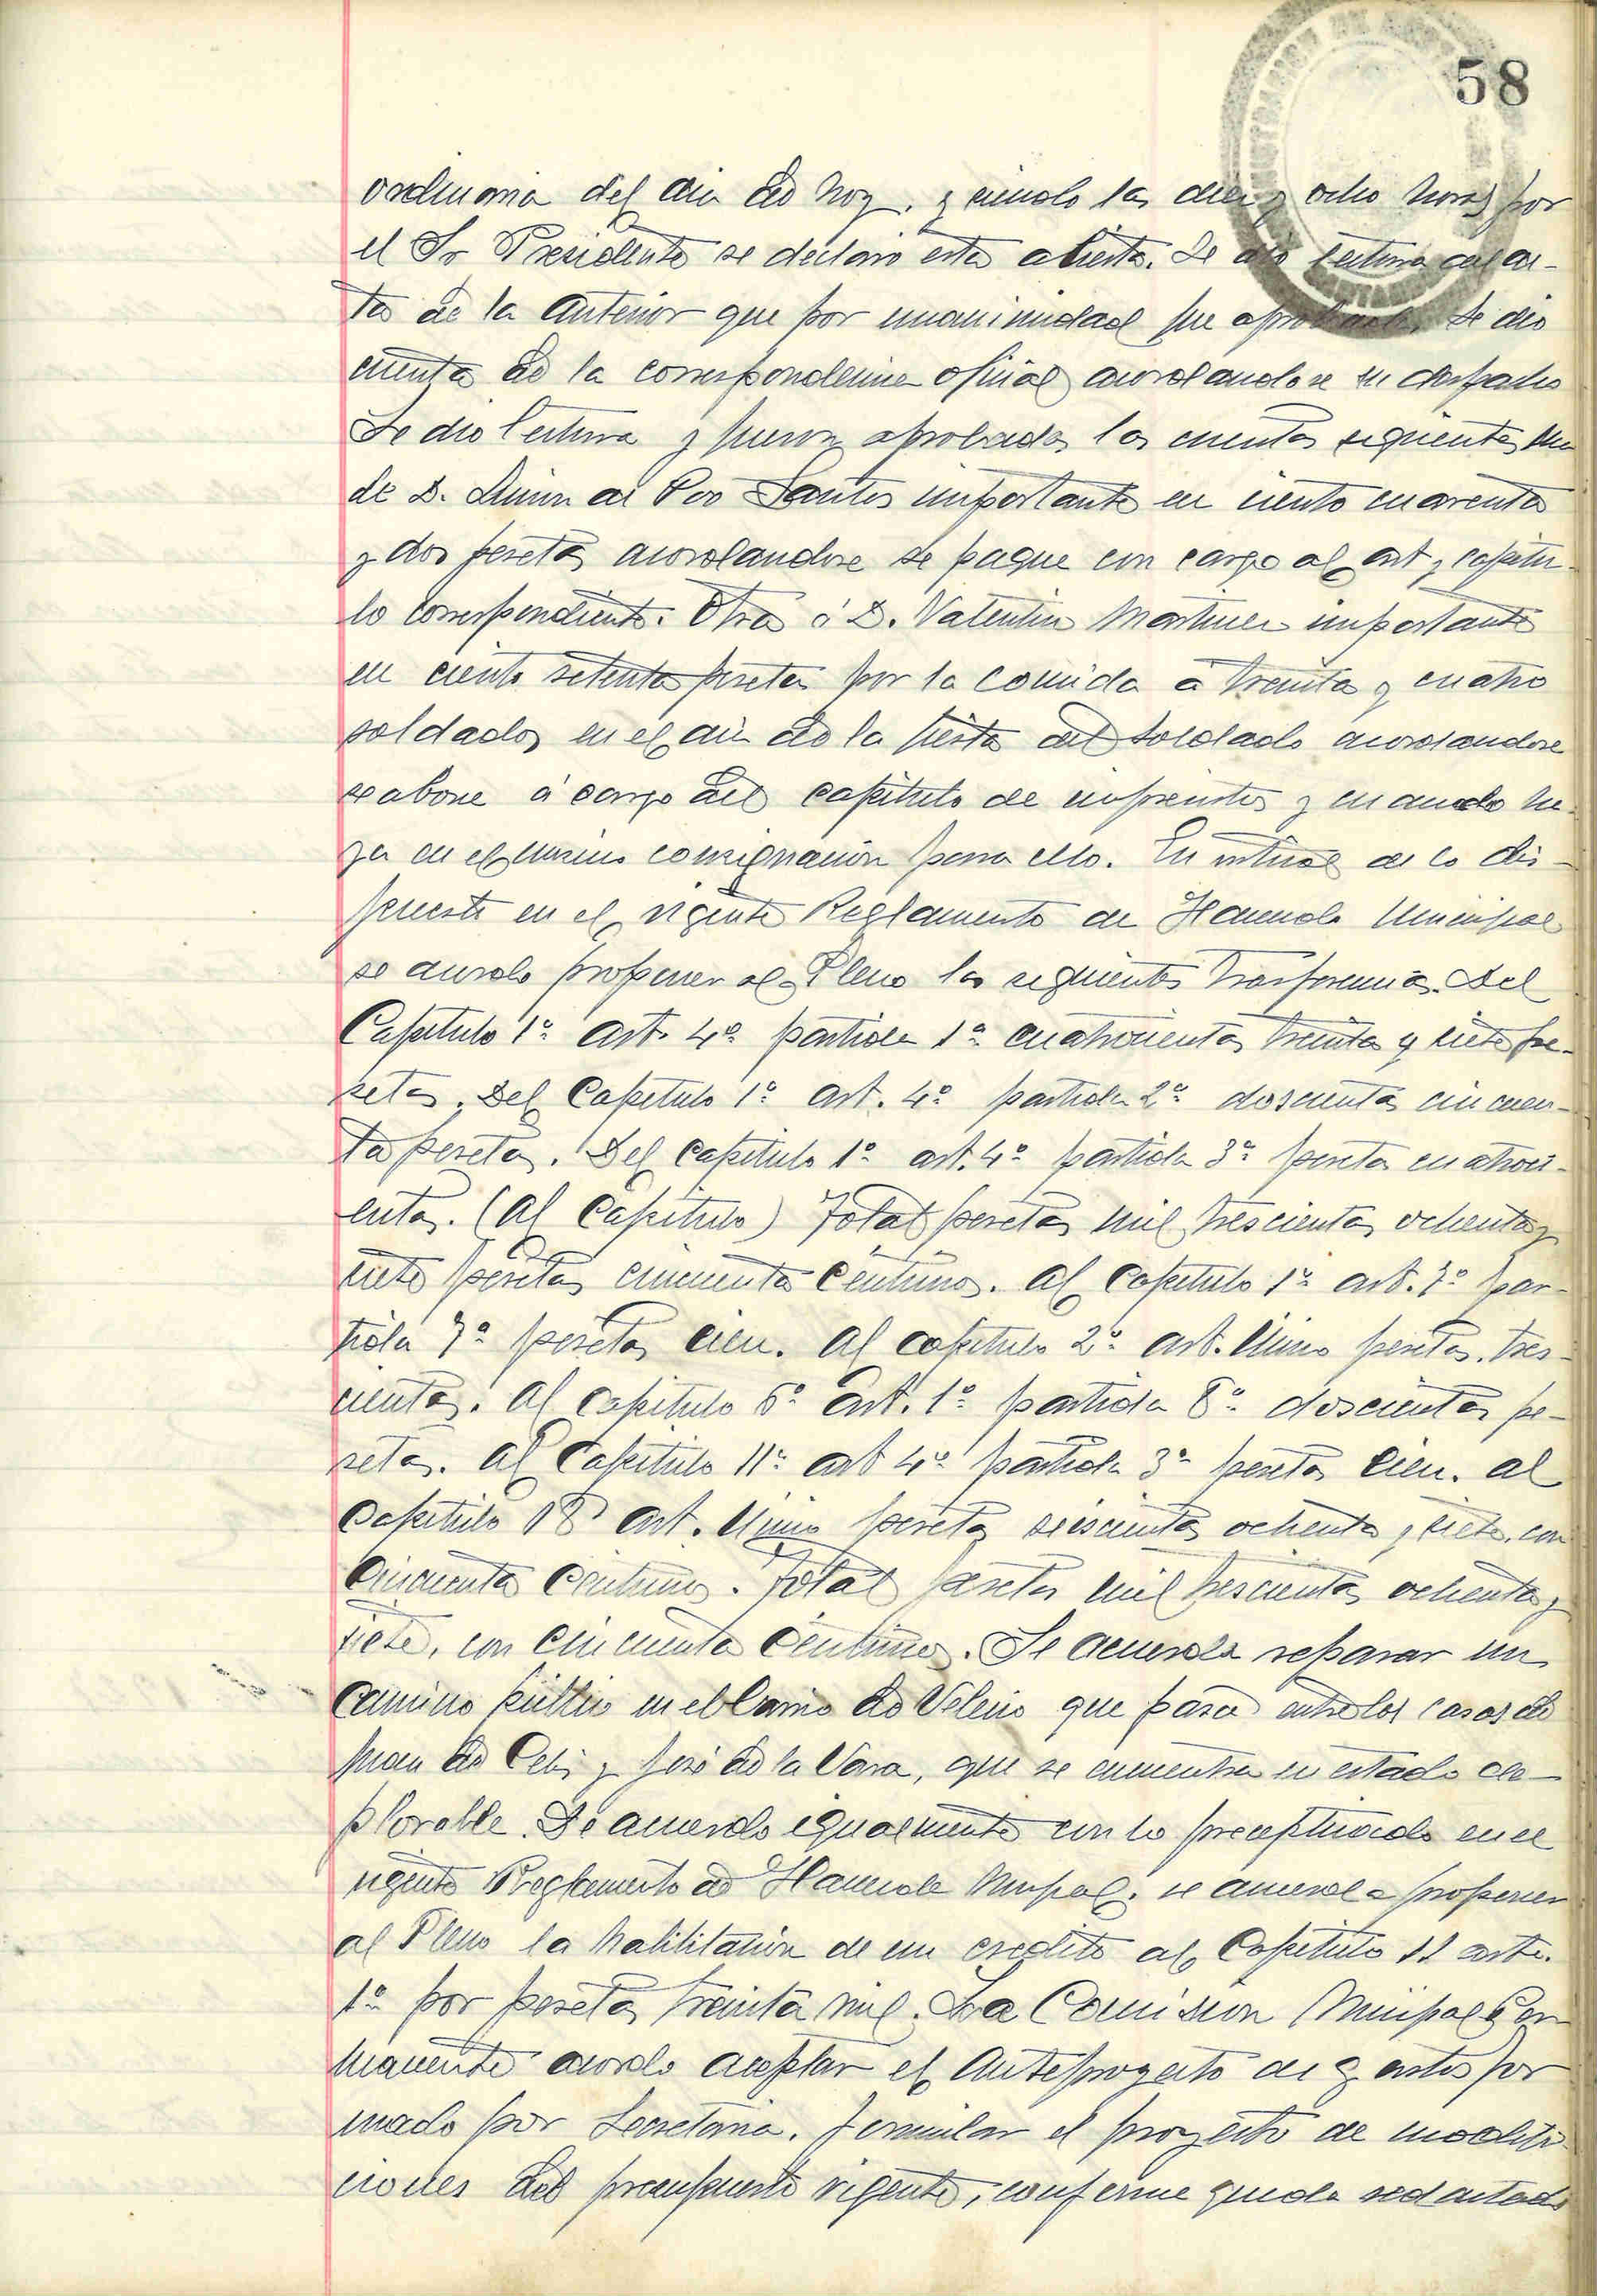 58
ordinaria del dia de hoy, y siendo las diez y ocho horas por
el Sr Presidente se declaro esta abierta. Se dio lectura del ac-
ta de la anterior que por unanimidad fue aprobada. Se dio
cuenta de la correspondencia oficial acordandose su despacho
Se dio lectura y fueron aprobadas las cuentas siguientes una
de D. de Poo Santos importante en ciento cuarenta
y dos pesetas acordandose se pague con cargo al art y capitu-
lo correspondiente. Otra á D. Valentin Martinez importante
en ciento setenta pesetas por la comida a treinta y cuatro
soldados en el dia de la fiesta del soldado acordandose
se abone á cargo del capitulo de imprevistos y cuando ha-
ya en el mismo consignación para ello. En virtud de lo dis-
puesto en el vigente Reglamento de Hacienda Municipal
se acordo proponer al Pleno las siguientes Trasferencias. Del
Capitulo 1º art. 4º partida 1ª cuatrocientas treinta y siete pe-
setas. Del Capitulo 1º art. 4º partida 2ª doscientas cincuen-
ta pesetas. Del Capitulo 1º art. 4º partida 3ª pesetas cuatroci-
entas. (Al Capitulo) Total pesetas mil trescientas ochenta y
siete pesetas cincuenta centimos. Al Capitulo 1º art. 7º par-
tida 7ª pesetas cien. Al capitulo 2º art. Unico pesetas. tres-
cientas. Al Capitulo 6º art. 1º partida 8ª doscientas pe-
setas. Al Capitulo 11º art 4º partida 3ª pesetas cien. Al
Capitulo 18 art. Unico pesetas seiscientas ochenta y siete, con
cincuenta centimos. Total pesetas mil trescientas ochenta y
siete, con cincuenta centimos. Se acuerda reparar un
camino público en el barrio de que pasa entre las casas de
Juan de Celis y José de la Vara, que se encuentra en estado de-
plorable. De acuerdo igualmente con lo preceptuado en el
vigente Reglamento de Hacienda Mupal. se acuerda proponer
al Pleno la habilitación de un credito al Capitulo 11 arto.
1º por pesetas treinta mil. La Comision Municipal Per-
manente acordo aceptar el anteproyecto de gastos for
mado por Secretaria. formular el proyecto de modifi-
ciones del presupuesto vigente, conforme queda redactado